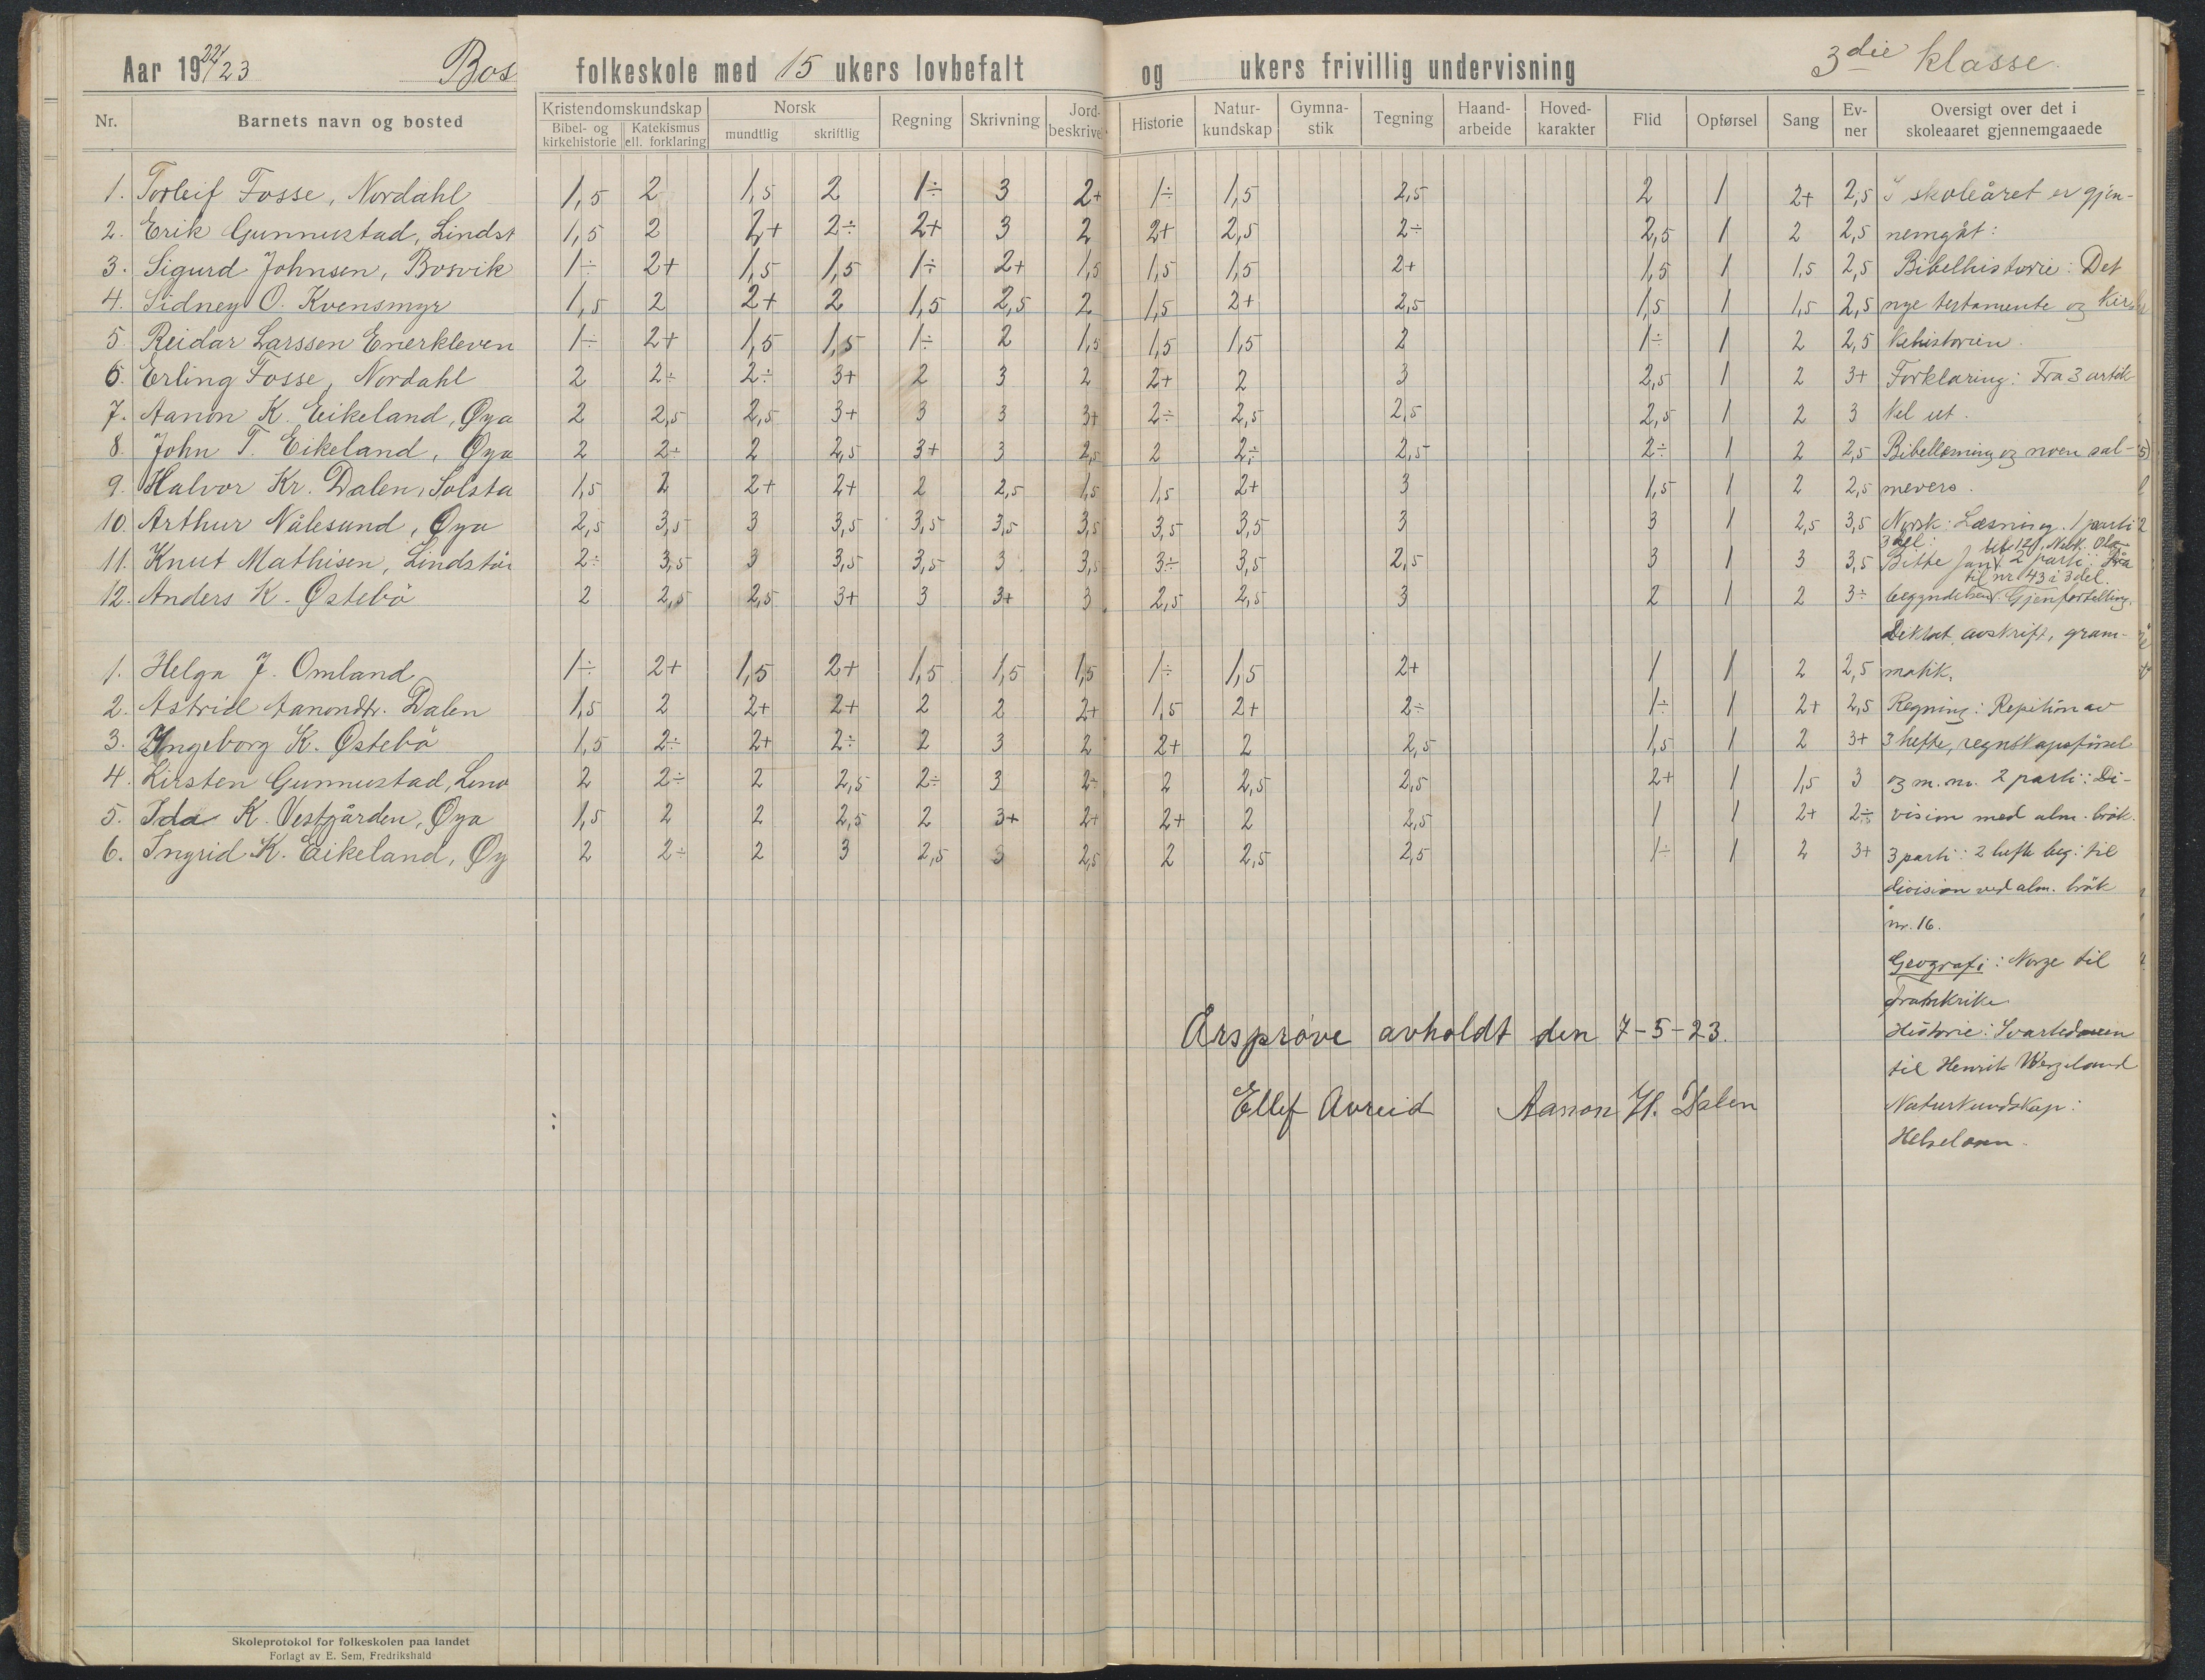 Aar 1922/23 Bos folkeskole med 15 ukers lovbefalt og ukers frivillig undervisning 3die klasse.
Nr. Barnets navn og bosted Kristendomskundskap Bibel- og kirkehistorie Katekismus ell. forklaring Norsk mundtlig skriftlig Regning Skrivning Jord-beskrivel Historie Natur-kundskap Gymna-stik Tegning Haand-arbeide Hoved-karakter Flid Opførsel Sang Ev-ner Oversigt over det i skoleaaret gjennemgaaede
1. Torleif Fosse, Nordahl 1,5 2 1,5 2 1÷ 3 2+ 1÷ 1,5 2,5 2 1 2+ 2,5 I skoleåret er gjen-
2. Erik Gunnustad, Lindst 1,5 2 2+ 2÷ 2+ 3 2 2+ 2,5 2÷ 2,5 1 2 2,5 nemgåt:
3. Sigurd Johnsen, Bosvik 1÷ 2+ 1,5 1,5 1÷ 2+ 1,5 1,5 1,5 2+ 1,5 1 1,5 2,5 Bibelhistorie: Det
4. Sidney O. Kvensmyr 1,5 2 2+ 2 1,5 2,5 2 1,5 2+ 2,5 1,5 1 1,5 2,5 nye testamente og kir
5. Reidar Larssen Enerkleven 1÷ 2+ 1,5 1,5 1÷ 2 1,5 1,5 1,5 2 1÷ 1 2 2,5 kehistorien.
6. Erling Fosse, Nordahl 2 2÷ 2÷ 3+ 2 3 2 2+ 2 3 2,5 1 2 3+ Forklaring: Fra 3 artik
7. Aanon K. Eikeland, Øya 2 2,5 2,5 3+ 3 3 3+ 2÷ 2,5 2,5 2,5 1 2 3 kel ut.
8. John T. Eikeland, Øya 2 2÷ 2 2,5 3+ 3 2,5 2 2÷ 2,5 2÷ 1 2 2,5 Bibellesning og noen sal-
9. Halvor Kr. Dalen, Solsta 1,5 2 2+ 2+ 2 2,5 1,5 1,5 2+ 3 1,5 1 2 2,5 mevers.
10. Arthur Nålesund, Øya 2,5 3,5 3 3,5 3,5 3,5 3,5 3,5 3,5 3 3 1 2,5 3,5 Norsk: Læsning. 1 parti
3 del:
11. Knut Mathisen, Lindstöi 2÷ 3,5 3 3,5 3,5 3 3,5 3÷ 3,5 2,5 3 1 3 3,5 Bitte 2 parti: Fra
til nr 43 i 3 del.
12. Anders K. Østebö 2 2,5 2,5 3+ 3 3+ 3 2,5 2,5 3 2 1 2 3÷ begyndelsen. Gjenfortelling.
Diktat, avskrift, gram-
1. Helga J. Omland 1÷ 2+ 1,5 2+ 1,5 1,5 1,5 1÷ 1,5 2+ 1 1 2 2,5 matik.
2. Astrid Aanondtr. Dalen 1,5 2 2+ 2+ 2 2 2+ 1,5 2+ 2÷ 1÷ 1 2+ 2,5 Regning: Repition av
3. Ingeborg K. Østebö 1,5 2÷ 2+ 2÷ 2 3 2 2+ 2 2,5 1,5 1 2 3+ 3 hefte, regnskapsförsel
4. Kirsten Gunnustad, Lind 2 2÷ 2 2,5 2÷ 3 2÷ 2 2,5 2,5 2+ 1 1,5 3 og m.m. 2 parti: Di-
5. Ida K. Vestgården, Øya 1,5 2 2 2,5 2 3+ 2+ 2+ 2 2,5 1 1 2+ 2÷ vision med alm. brök.
6. Ingrid K. Eikeland, Øy 2 2÷ 2 3 2,5 3 2,5 2 2,5 2,5 1÷ 1 2 3+ 3 parti: 2 hefte beg: til
division ved alm. brök
nr. 16.
Geografi: Norge til
Frankrike
Årspröve avholdt den 7-5-23.
Historie: Svartedauen
til Henrik Wergeland
Ellef Avreid Aanon H. Dalen
Naturkundskap:
Helselære.
Skoleprotokol for folkeskolen paa landet
Forlagt av E. Sem, Fredrikshald